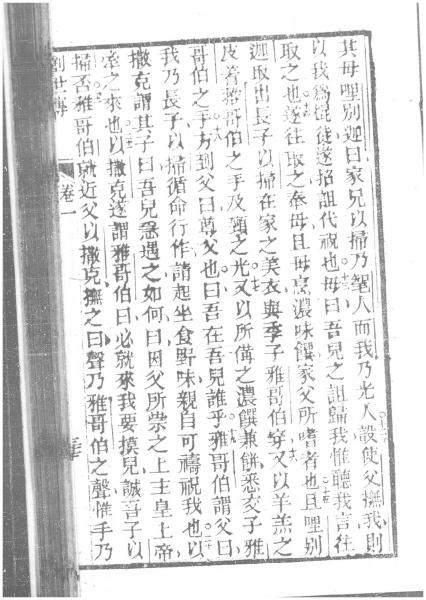 其母哩別迦曰家兄以掃乃髦人而我乃光人設使父撫我則
以我爲混徒遂招詛代祝也毋曰吾兒之詛歸我惟聽我言往
取之也遂往取之奉母且母烹濃味饌家父所嗜者也且哩别
迦取出長子以掃在家之美衣與季子雅哥伯穿又以羊羔之
皮著雅哥伯之手及頸之光又以所備之濃饌兼餅悉交子雅
哥伯之手方到父曰尊父也曰吾在吾兒誰乎雅哥伯謂父曰
我乃長子以掃循命行作請起坐食野味親自可禱祝我也以
撒克謂其子曰吾兒急遇之如何曰因父所崇之上主皇上帝
室之來也以撒克遂謂雅哥伯曰必就來我要摸兒誠吾子以
掃否雅哥伯就近父以撒克撫之曰聲乃雅哥伯之聲惟手乃
創世傳
卷一